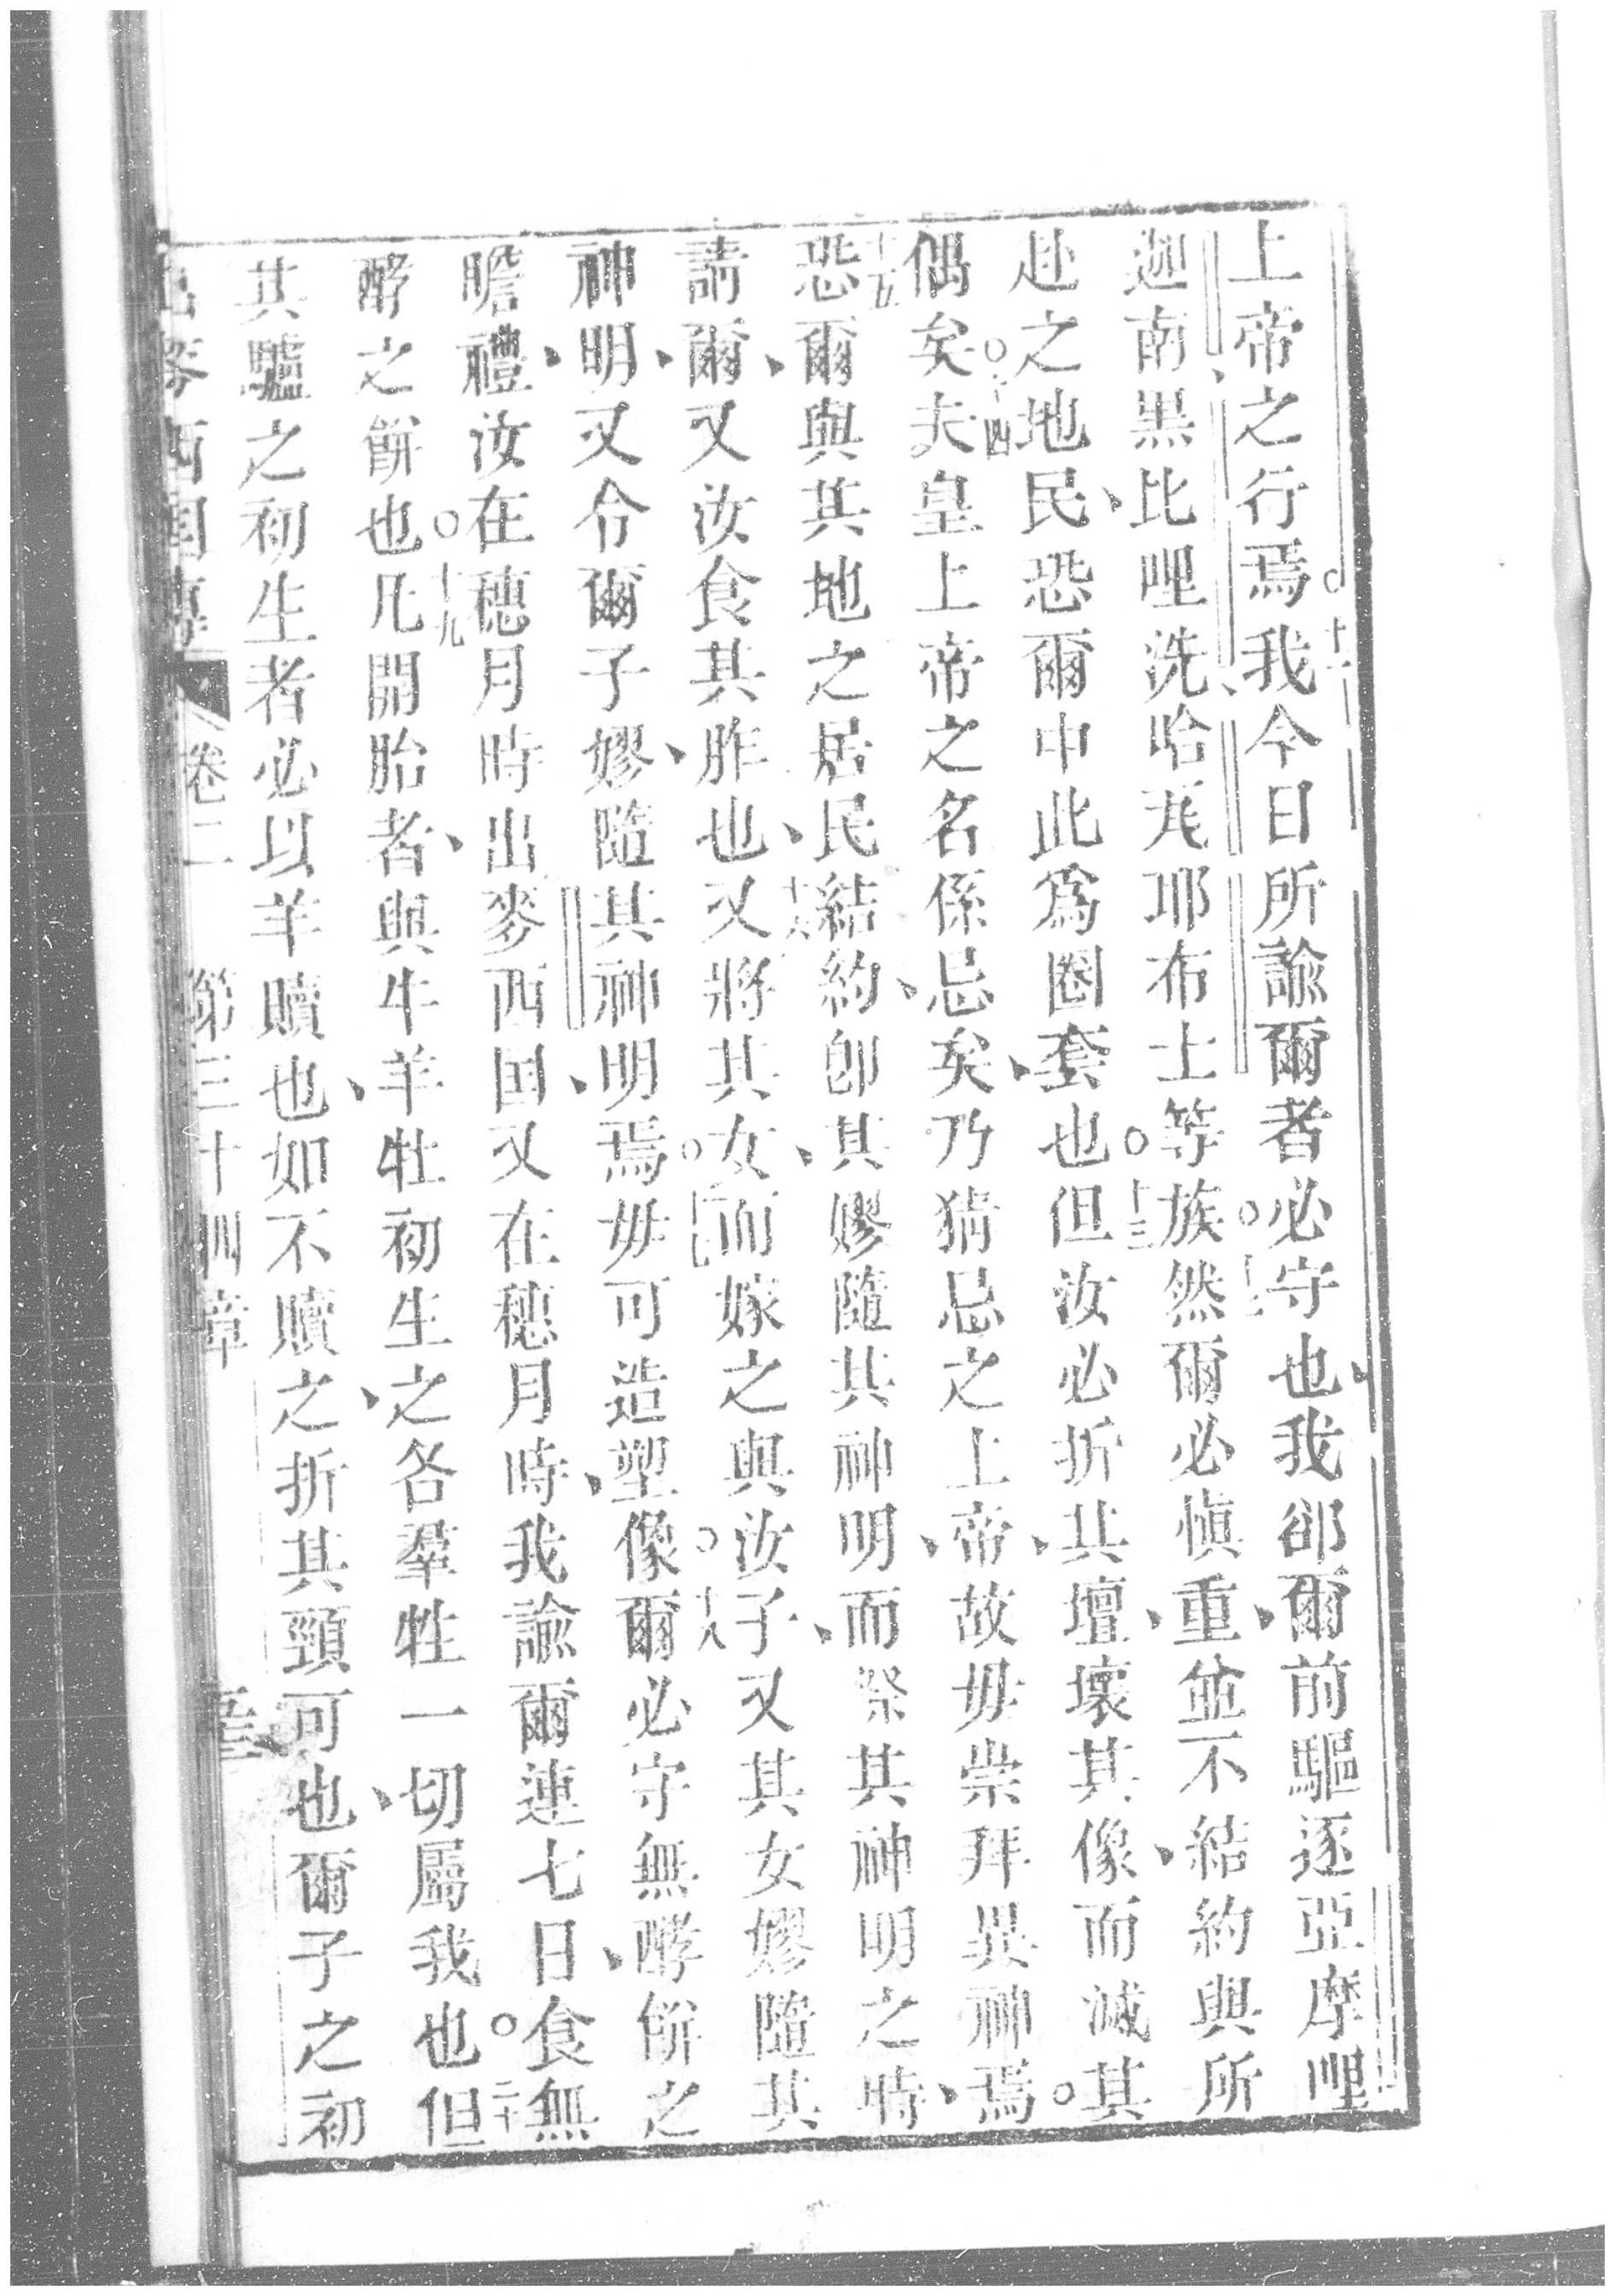 上帝之行焉。十一我今日所諭爾者必守也、我卻爾前驅逐亞摩哩
迦南黑比哩洗哈𠀾耶布士等族。十二然爾必慎重、並不結約與所
赴之地民、恐爾中此為圈套也。十三但汝必折其壇、壞其像、而滅其
偶矣。十四夫皇上帝之名係忌矣、乃猜忌之上帝、故毋崇拜異神焉。
十五恐爾與其地之居民結約、卽其嫪隨其神明、而祭其神明之時、
請爾、又汝食其胙也、十六又將其女、而嫁之與汝子、又其女嫪隨其
神明、又令爾子嫪、隨其神明焉。十七毋可造塑像。十八爾必守無酵餅之
瞻禮、汝在穗月時出麥西国、又在穗月時、我諭爾連七日、食無
酵之餅也。十九凡開胎者、與牛羊牡初生之各羣牲一切屬我也。二十但
其驢之初生者必以羊贖也、如不贖之、折其頸可也、爾子之初
出麥西国傳 卷二 第三十四章